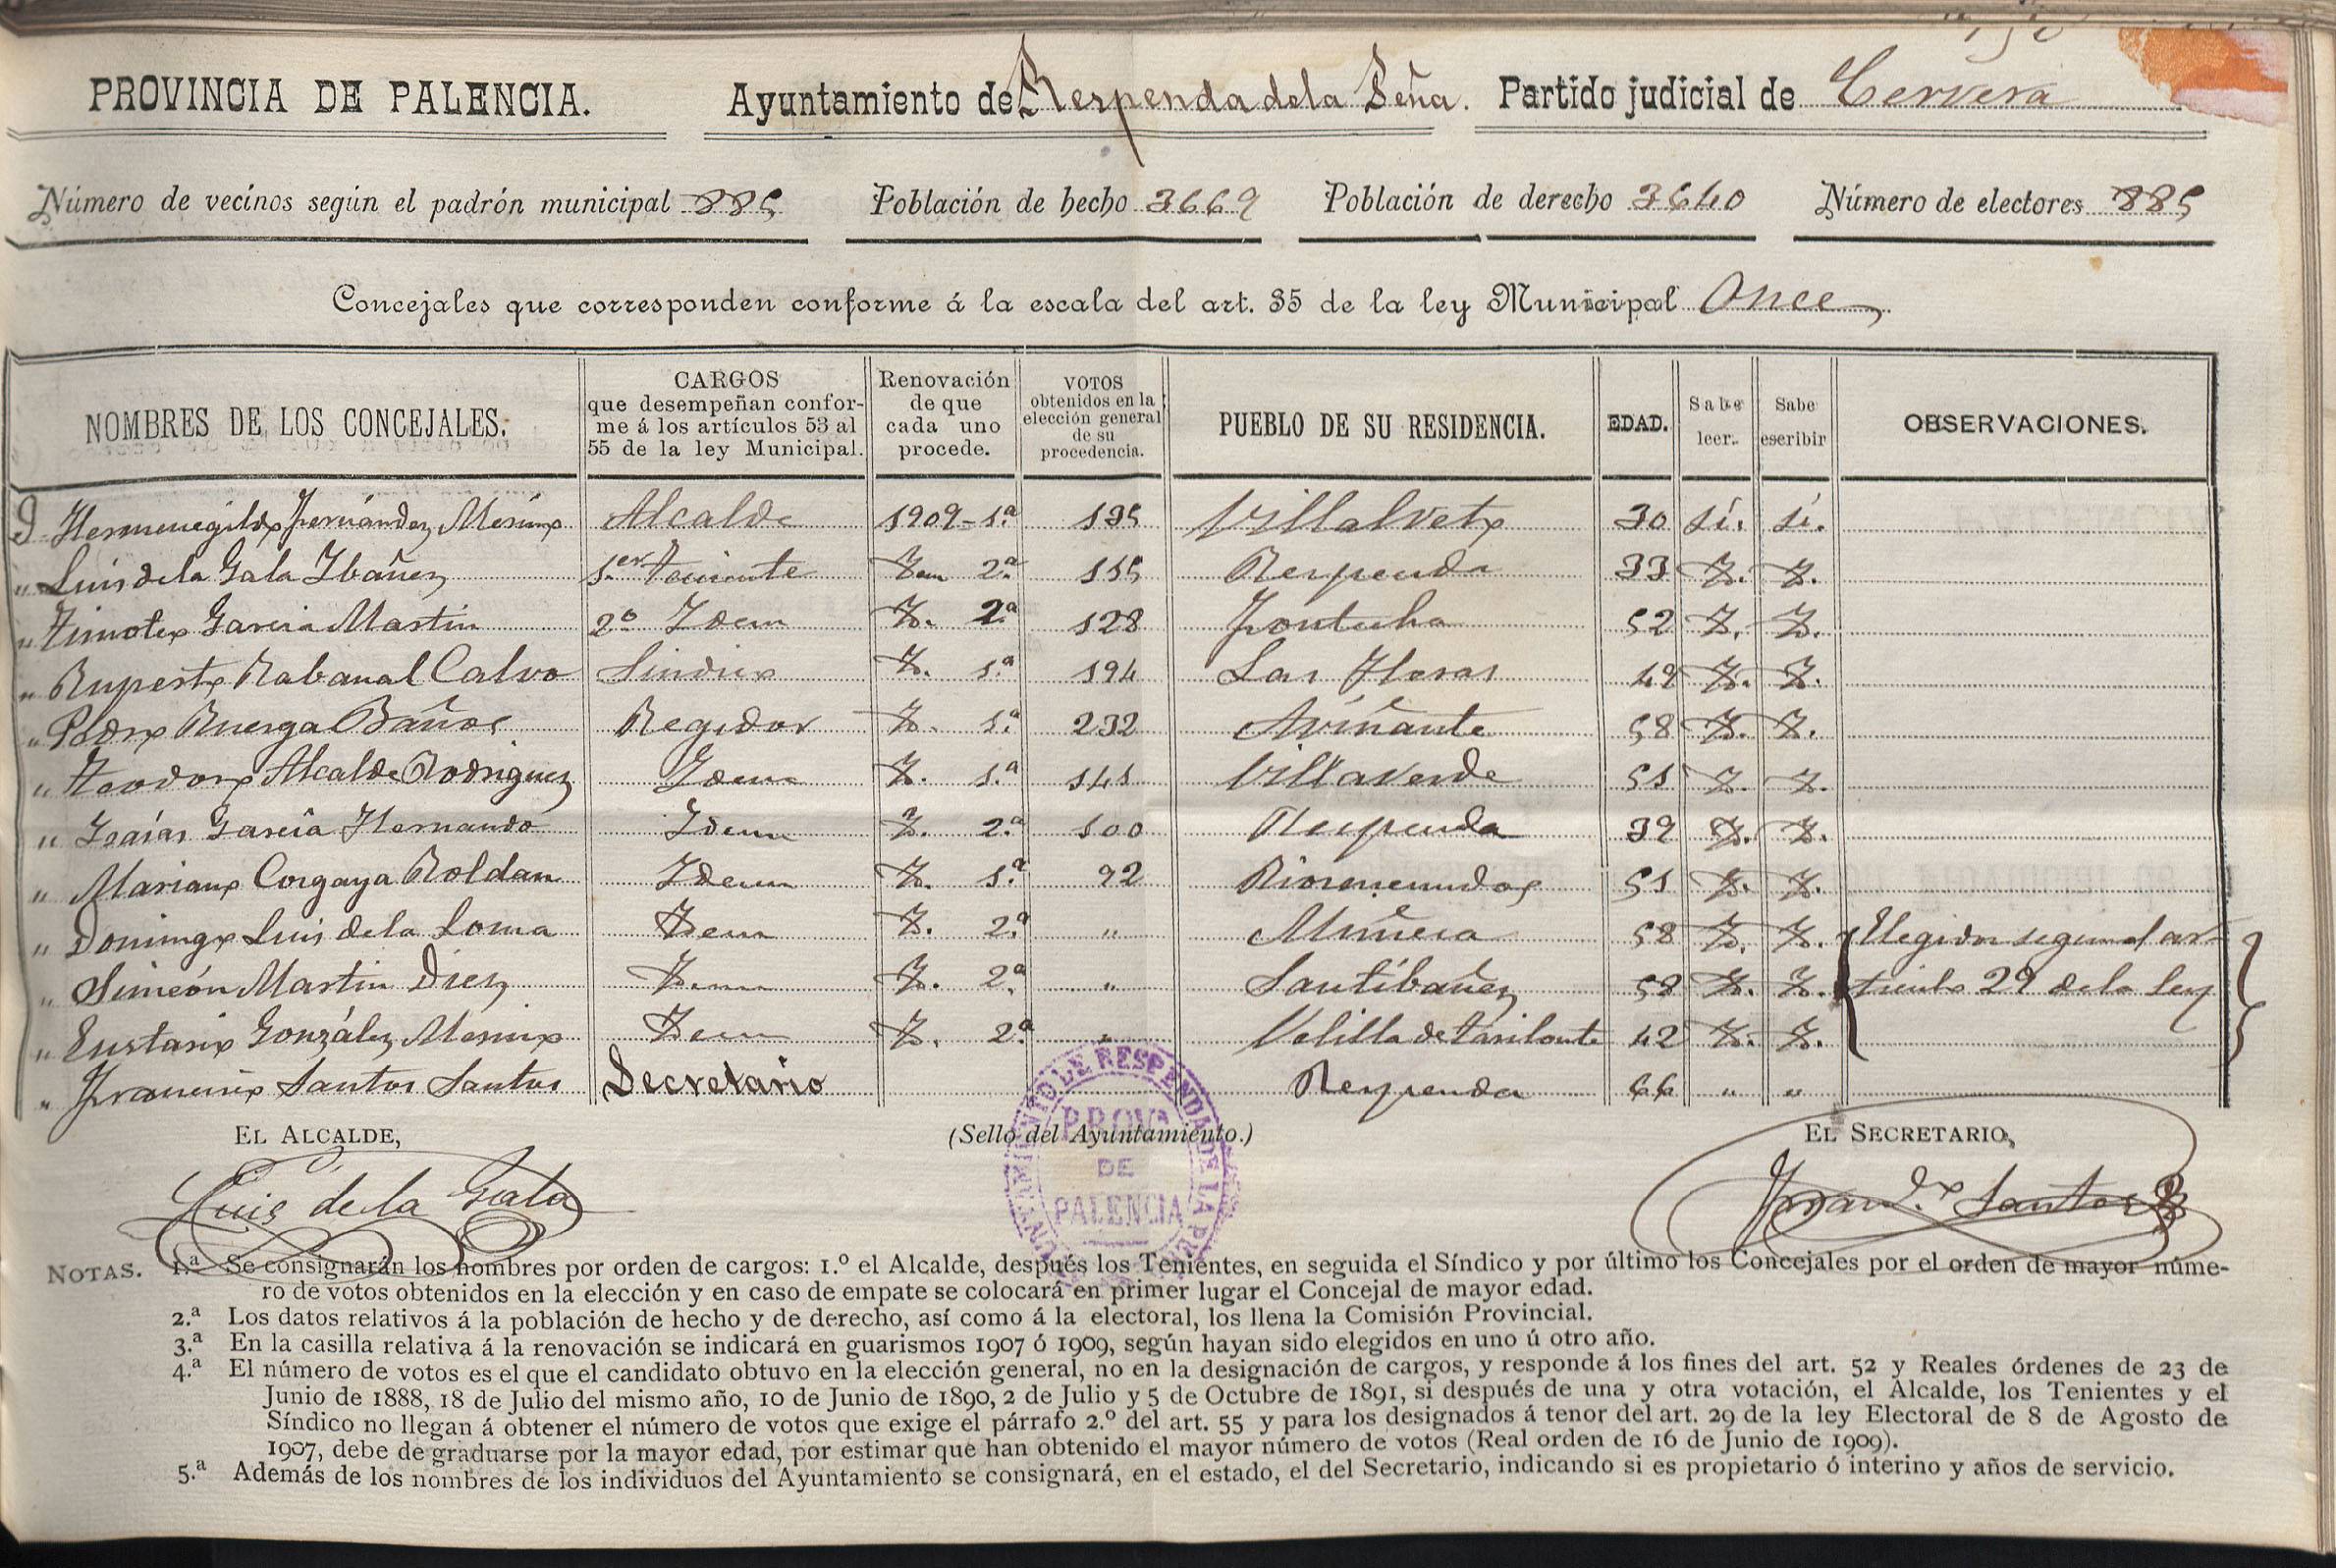 PROVINCIA DE PALENCIA. Ayuntamiento de Respenda de la Peña. Partido judicial de Cervera
Número de vecinos según el padrón municipal 885 Población de hecho 3669 Población de derecho 3640 Número de electores 885
Concejales que corresponden conforme á la escala del art. 35 de la ley Municipal Once
NOMBRES DE LOS CONCEJALES. CARGOS que desempeñan conforme á los artículos 53 al 55 de la ley Municipal. Renovación de que cada uno procede. VOTOS obtenidos en la elección general de su procedencia. PUEBLO DE SU RESIDENCIA. EDAD. Sabe leer. Sabe escribir OBSERVACIONES.
D. Hermenegildo Fernández Merino Alcalde 1909-1.ª 135 Villalveto 30 sí. sí.
" Luis de la Gala Ibáñez 1.er Teniente Idem 2.ª 115 Respenda 33 I. I.
" Timoteo Garcia Martin 2º Idem I. 2.ª 128 Fontecha 52 I. I.
" Ruperto Rabanal Calvo Sindico I. 1.ª 194 Las Heras 49 I. I.
" Pedro Ruerga Baños Regidor I. 1.ª 232 Aviñante 58 I. I.
" Teodoro Alcalde Rodriguez Idem I. 1.ª 141 Villaverde 51 I. I.
" Isaías García Hernando Idem I. 2.ª 100 Respenda 39 I. I.
" Mariano Corgaya Roldan Idem I. 1.ª 92 Riosmenudos 51 I. I.
" Domingo Luis de la Loma Idem I. 2.ª " Muñeca 58 I. I. Elegidos segun el ar-
" Simeón Martin Diez Idem I. 2.ª " Santibañez 58 I. I. ticulo 29 de la ley
" Eustasio González Merino Idem I. 2.ª " Velilla de Tarilonte 42 I. I.
" Francisco Santos Santos Secretario Respenda 66 " "
EL ALCALDE, (Sello del Ayuntamiento.) EL SECRETARIO,
Luis de la Gala
AYUNTAMIENTO DE RESPENDA DE LA PEÑA
PROVª DE PALENCIA
Franco Santos
NOTAS. 1.ª Se consignarán los nombres por orden de cargos: 1.º el Alcalde, después los Tenientes, en seguida el Síndico y por último los Concejales por el orden de mayor núme-
ro de votos obtenidos en la elección y en caso de empate se colocará en primer lugar el Concejal de mayor edad.
2.ª Los datos relativos á la población de hecho y de derecho, así como á la electoral, los llena la Comisión Provincial.
3.ª En la casilla relativa á la renovación se indicará en guarismos 1907 ó 1909, según hayan sido elegidos en uno ú otro año.
4.ª El número de votos es el que el candidato obtuvo en la elección general, no en la designación de cargos, y responde á los fines del art. 52 y Reales órdenes de 23 de
Junio de 1888, 18 de Julio del mismo año, 10 de Junio de 1890, 2 de Julio y 5 de Octubre de 1891, si después de una y otra votación, el Alcalde, los Tenientes y el
Síndico no llegan á obtener el número de votos que exige el párrafo 2.º del art. 55 y para los designados á tenor del art. 29 de la ley Electoral de 8 de Agosto de
1907, debe de graduarse por la mayor edad, por estimar que han obtenido el mayor número de votos (Real orden de 16 de Junio de 1909).
5.ª Además de los nombres de los individuos del Ayuntamiento se consignará, en el estado, el del Secretario, indicando si es propietario ó interino y años de servicio.